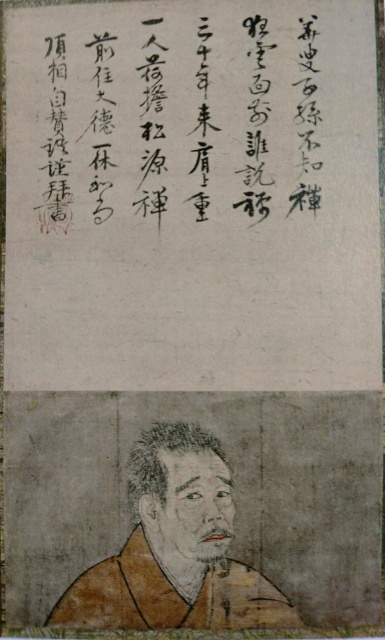 華叟子孫不知禅
狂雲面前誰説禅
三十年来肩上重
一人荷擔松源禅
前住大徳一休和尚
頂相自賛語謹拜書